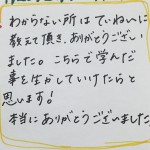 わからない所はていねいに
教えて頂き、ありがとうござい
ました。こちらで学んだ
事を生かしていけたらと
思います！
本当にありがとうございました